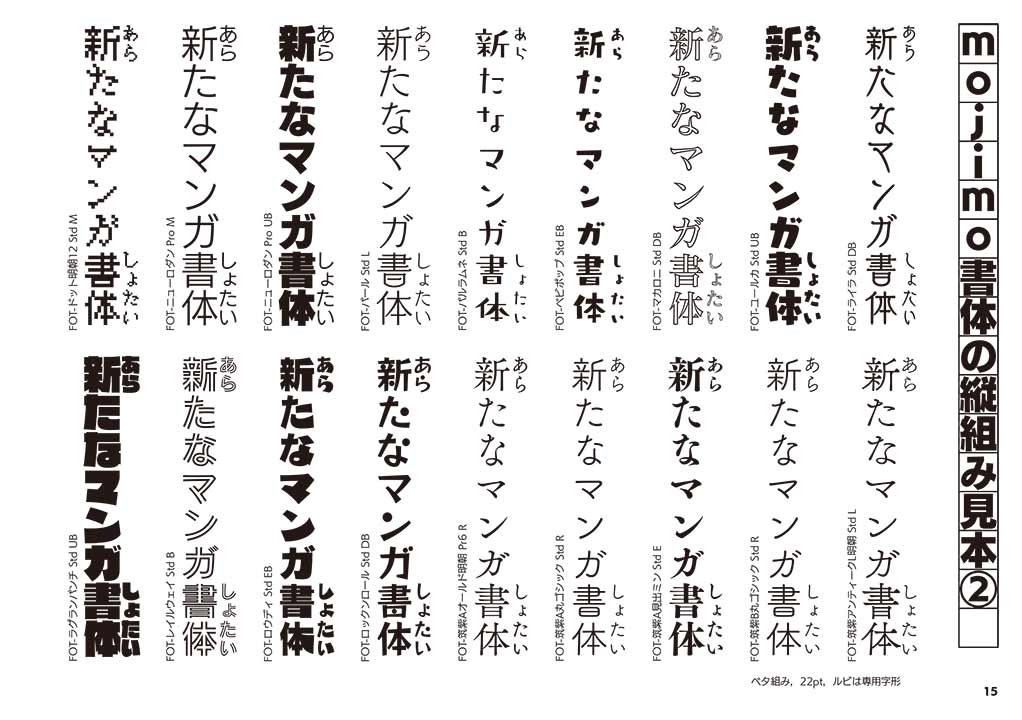 mojimo書体の縦組み見本②
あら しょたい
新たなマンガ書体
FOT-ライラ Std DB
あら しょたい
新たなマンガ書体
FOT-ユールカ Std UB
あら しょたい
新たなマンガ書体
FOT-マカロニ Std DB
あら しょたい
新たなマンガ書体
FOT-ベビポップ Std EB
あら しょたい
新たなマンガ書体
FOT-パルラムネ Std B
あら しょたい
新たなマンガ書体
FOT-パール Std L
あら しょたい
新たなマンガ書体
FOT-ニューロダン Pro UB
あら しょたい
新たなマンガ書体
FOT-ニューロダン Pro M
あら しょたい
新たなマンガ書体
FOT-ドット明朝12 Std M
あら しょたい
新たなマンガ書体
FOT-筑紫アンティークL明朝 Std L
あら しょたい
新たなマンガ書体
FOT-筑紫B丸ゴシック Std R
あら しょたい
新たなマンガ書体
FOT-筑紫A見出ミン Std E
あら しょたい
新たなマンガ書体
FOT-筑紫A丸ゴシック Std R
あら しょたい
新たなマンガ書体
FOT-筑紫Aオールド明朝 Pr6 R
あら しょたい
新たなマンガ書体
FOT-ロックンロール Std DB
あら しょたい
新たなマンガ書体
FOT-ロウディ Std EB
あら しょたい
新たなマンガ書体
FOT-レイルウェイ Std B
あら しょたい
新たなマンガ書体
FOT-ラグランパンチ Std UB
ベタ組み，22pt，ルビは専用字形
15